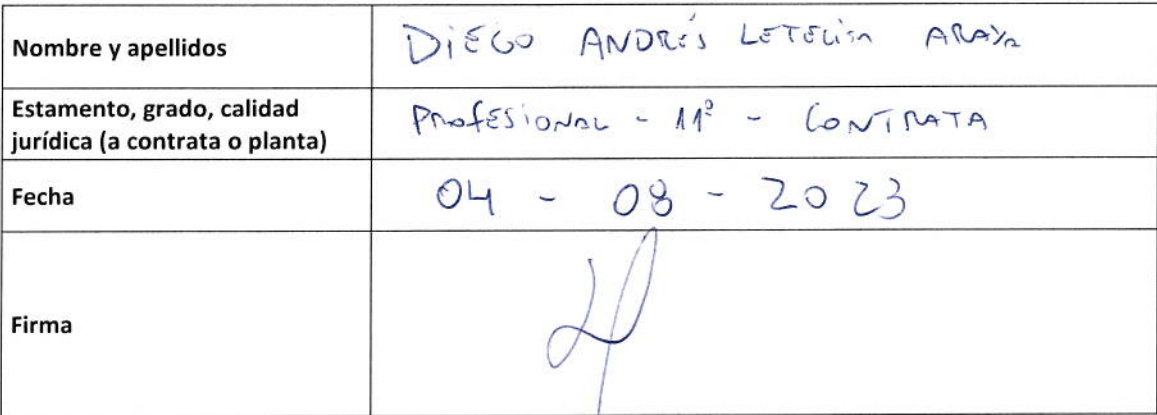 Nombre y apellidos
DIEGO ANDRÉS LETELIER ARAYA
Estamento, grado, calidad
jurídica (a contrata o planta)
PROFESIONAL - 11º - CONTRATA
Fecha
04 - 08 - 2023
Firma